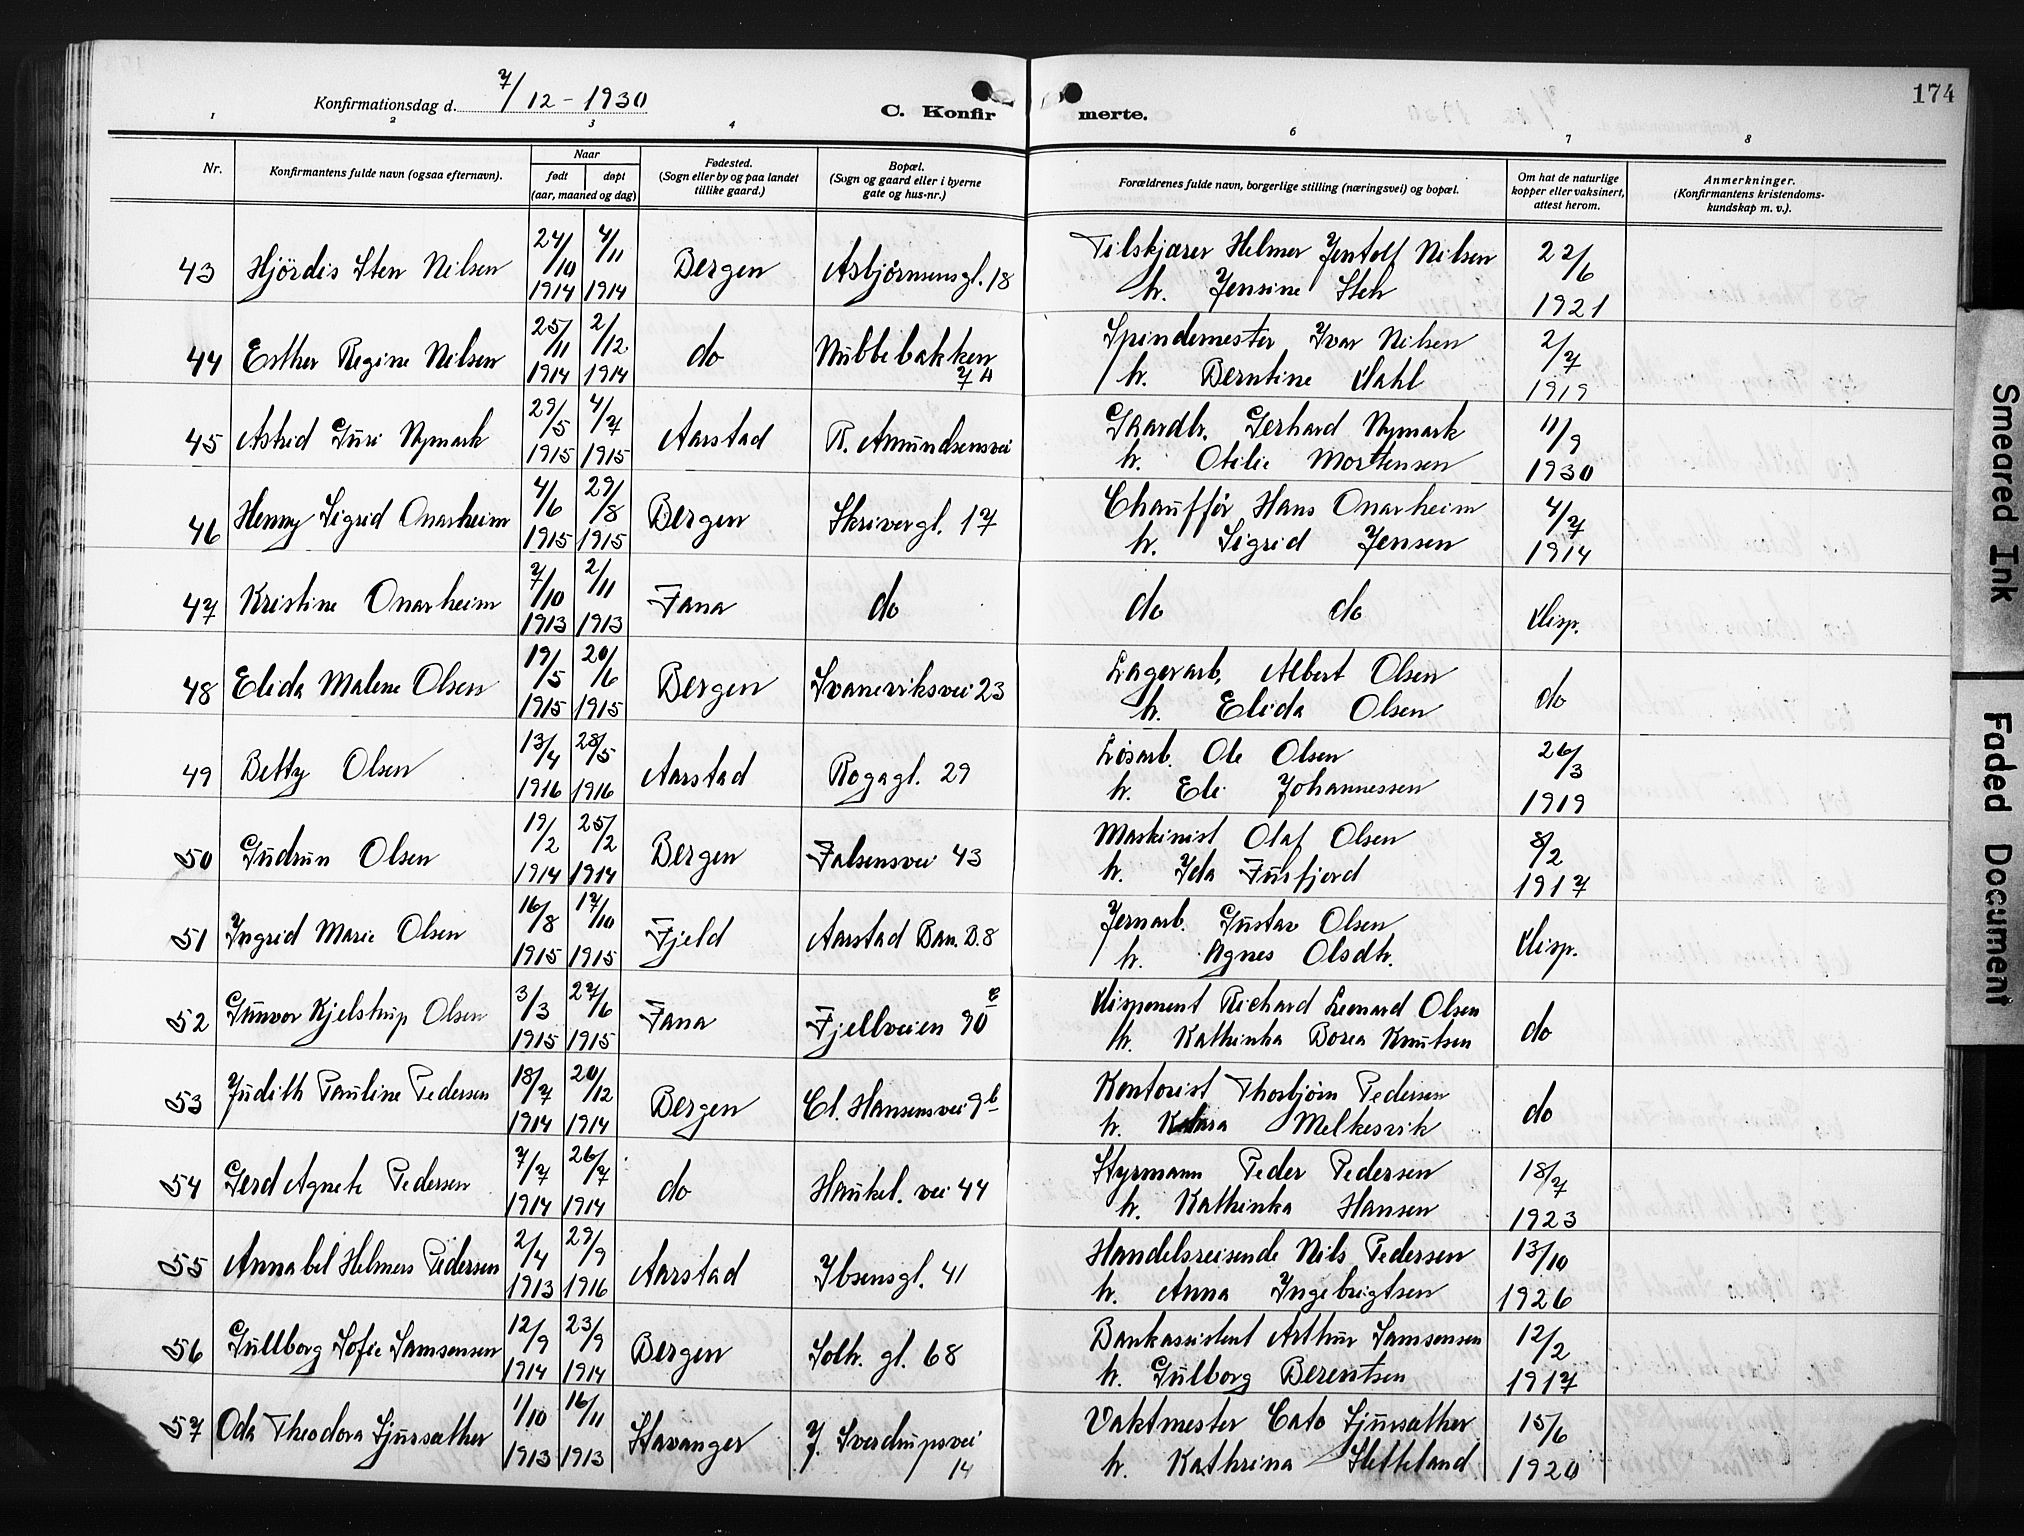 174
Konfirmationsdag d. 7/12 - 1930
C. Konfirmerte.
1 2 3 4 6 7 8
Nr. | Konfirmantens fulde navn (ogsaa efternavn). | Naar født døpt (aar, maaned og dag) | Fødested. (Sogn eller by og paa landet tillike gaard.) | Bopæl. (Sogn og gaard eller i byerne gate og hus-nr.) | Forældrenes fulde navn, borgerlige stilling (næringsvei) og bopæl. | Om hat de naturlige kopper eller vaksinert, attest herom. | Anmerkninger. (Konfirmantens kristendoms-kundskap m. v.).
43 Hjördis Sten Nilsen 24/10 1914 4/11 1914 Bergen Asbjørnsensgt. 18 Tilskjærer Helmer Jentolf Nilsen h. Jensine Sten 22/6 1921
44 Esther Regine Nilsen 25/11 1914 2/12 1914 do Nubbebakken 7 A Spindemester Ivar Nilsen h. Berntine Dahl 2/7 1919
45 Astrid Guri Nymark 29/5 1915 4/7 1915 Aarstad R. Amundsensvei Gaardbr. Gerhard Nymark h. Otilie Mortensen 11/9 1930
46 Henny Sigrid Onarheim 4/6 1915 29/8 1915 Bergen Skrivergt. 17 Chauffør Hans Onarheim h. Sigrid Jensen 4/7 1914
47 Kristine Onarheim 7/10 1913 2/11 1913 Fana do do do Disp.
48 Elida Malene Olsen 19/5 1915 20/6 1915 Bergen Svaneviksvei 23 Lagerarb. Albert Olsen h. Elida Olsen do
49 Betty Olsen 13/4 1916 28/5 1916 Aarstad Rogagt. 29 Løsarb. Ole Olsen h. Eli Johannessen 26/3 1919
50 Gudrun Olsen 19/2 1914 25/2 1914 Bergen Falsensvei 43 Maskinist Olaf Olsen h. Ida Fusfjord 8/2 1917
51 Ingrid Marie Olsen 16/8 1915 17/10 1915 Fjeld Aarstad Ban. B. 8 Jernarb. Gustav Olsen h. Agnes Olsdtr. Disp.
52 Gunvor Kjelstrup Olsen 3/3 1915 27/6 1915 Fana Fjellveien 90 Disponent Richard Leonard Olsen h. Kathinka Borea Knutsen do
53 Judith Pauline Pedersen 18/7 1914 20/12 1914 Bergen Cl. Hansensvei 9b Kontorist Thorbjørn Pedersen h. Klara Melkesvik do
54 Gerd Agnete Pedersen 7/7 1914 26/7 1914 do Haukel. vei 44 Styrmann Peder Pedersen h. Kathinka Hansen 18/7 1923
55 Annabel Helmers Pedersen 2/4 1913 29/9 1916 Aarstad Ibsensgt. 41 Handelsreisende Nils Pedersen h. Anna Ingebrigtsen 13/10 1926
56 Gullborg Sofie Samsonsen 12/9 1914 23/9 1914 Bergen Solh. gt. 68 Bankassistent Arthur Samsonsen h. Gulborg Berentsen 12/2 1917
57 Oda Theodora Sjursæther 1/10 1913 16/11 1913 Stavanger J. Sverdrupsvei 14 Vaktmester Cato Sjursæther h. Kathrina Sletteland 15/6 1920
Smeared Ink
Faded Document